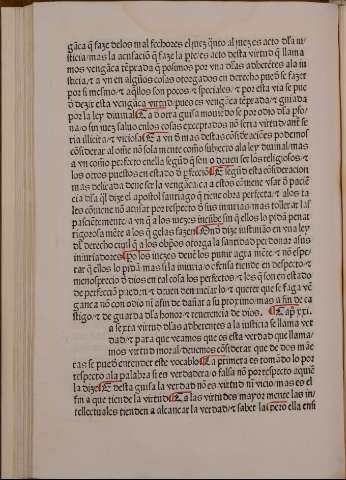 gãça q̃ faze delos mal fechores el juez q̃nto al juez es acto dla iu
sticia/mas la acusaciõ q̃ faze la pte/es acto desta virtud q̃ llama
mos vengãça tẽprada q̃ posimos por vna dlas adherẽtes ala iu
sticia/⁊ a vn en algũos casos otorgados en derecho puedẽ se fazer
por si mesmo/⁊ aq̃llos son pocos ⁊ speciales/⁊ por esta via se pue
dẽ dezir esta vengãça virtud/pues es vengãça tẽprada/⁊ guiada
por la ley diuinal/¶Ca d otra guisa mouiẽdo se por odio dla pso/
na/o sin juez saluo en los casos exceptados nõ seria virtud/ant̃ se
ria illicita/⁊ viciosa/¶E a vn d mas destas cõsideraciões podemos
cõsiderar al om̃e nõ sola mente com̃o subiecto ala ley diuinal/mas
a vn com̃o perfecto en ella segũd q̃ son o deuen ser los religiosos/⁊
los otros puestos en estado d perfeciõ/¶E segũd esta cõsideracion
mas delicada deue ser la vengãça/ca a estos cõuiene vsar d paciẽ
cia dla q̃l dize el apostol santiago q̃ tiene obra perfecta/⁊ alos ta
les cõuiene nõ acusar por respecto d sus iniurias/mas tollerar las
pasciẽtemente/a vn q̃ a los juezes incũbe sin q̃ ellos lo pidã penar
rigorosa mẽte a los q̃ gelas fazen/¶Onde dize iustinião en vna ley
dl derecho ciuil q̃ a los obp̃os otorga la santidad perdonar a sus
iniuriadores/¶Po los juezes deuẽ los punir agra mẽte/⁊ nõ espe/
rar q̃ ellos lo pidã/mas si la iniuria/o ofensa tiende en despecto/⁊
menosprecio d dios en tal cosa los perfectos/⁊ los q̃ son en estado
de perfeciõ puedẽ/⁊ deuen denunciar lo/⁊ querer que se faga vẽ
gança nõ con odio ni a fin de dañar a su proximo/mas a fin de ca
stigo/⁊ de guarda dla honor ⁊ reuerencia de dios. ¶Cap̃.xxi.
a sexta virtud dlas adherentes a la iusticia se llama ver
dad/⁊ para que veamos que es esta verdad que llama/
mos virtud moral/deuemos cõsiderar que de dos mãe
ras se puede entender este vocablo/¶La primera es tomãdo lo por
respecto ala palabra si es verdadera/o falsa nõ por respecto aquiẽ
la dize/¶E desta guisa la verdad nõ es virtud ni vicio/mas es el
fin a que tiende la virtud/¶Ca las virtudes mayor mente las in/
tellectuales tienden a alcançar la verdad/⁊ saber la/pero ella ensi